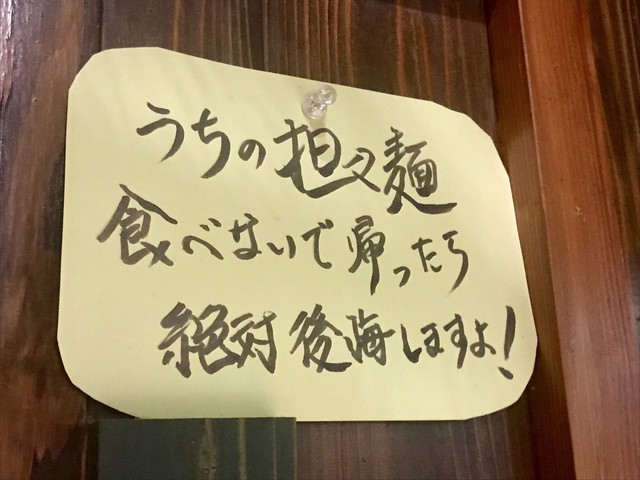 うちの担々麺
食べないで帰ったら
絶対後海しますよ!